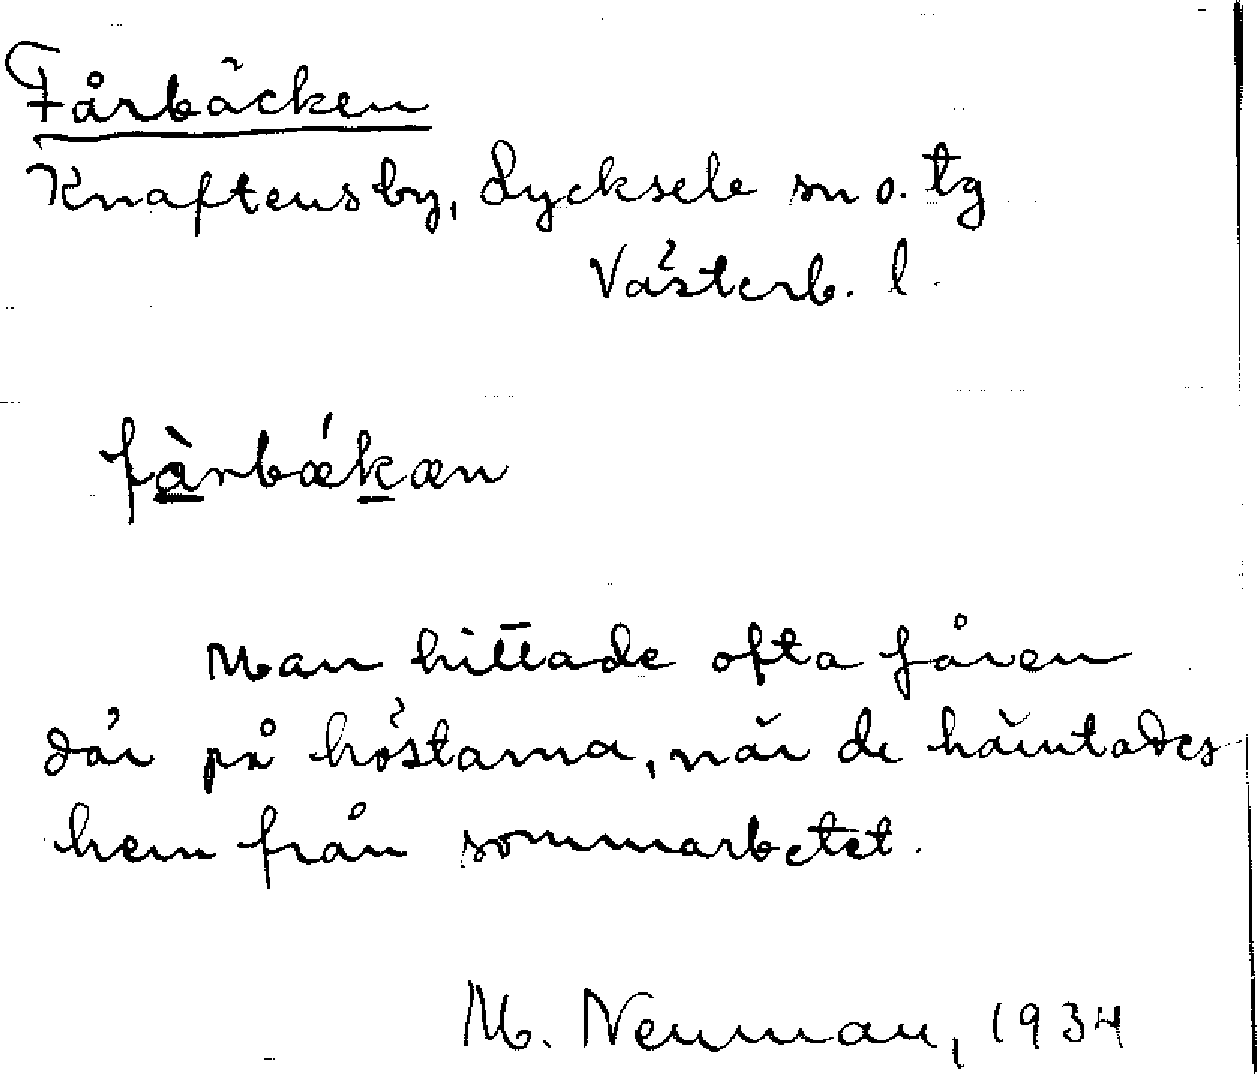 Fårbäcken
Knaftens by, Lycksele sn o. tg
Västerb. l.
fàrbǽkæn
Man hittade ofta fåren
där på höstarna, när de hämtades
hem från sommarbetet.
M. Neuman, 1934